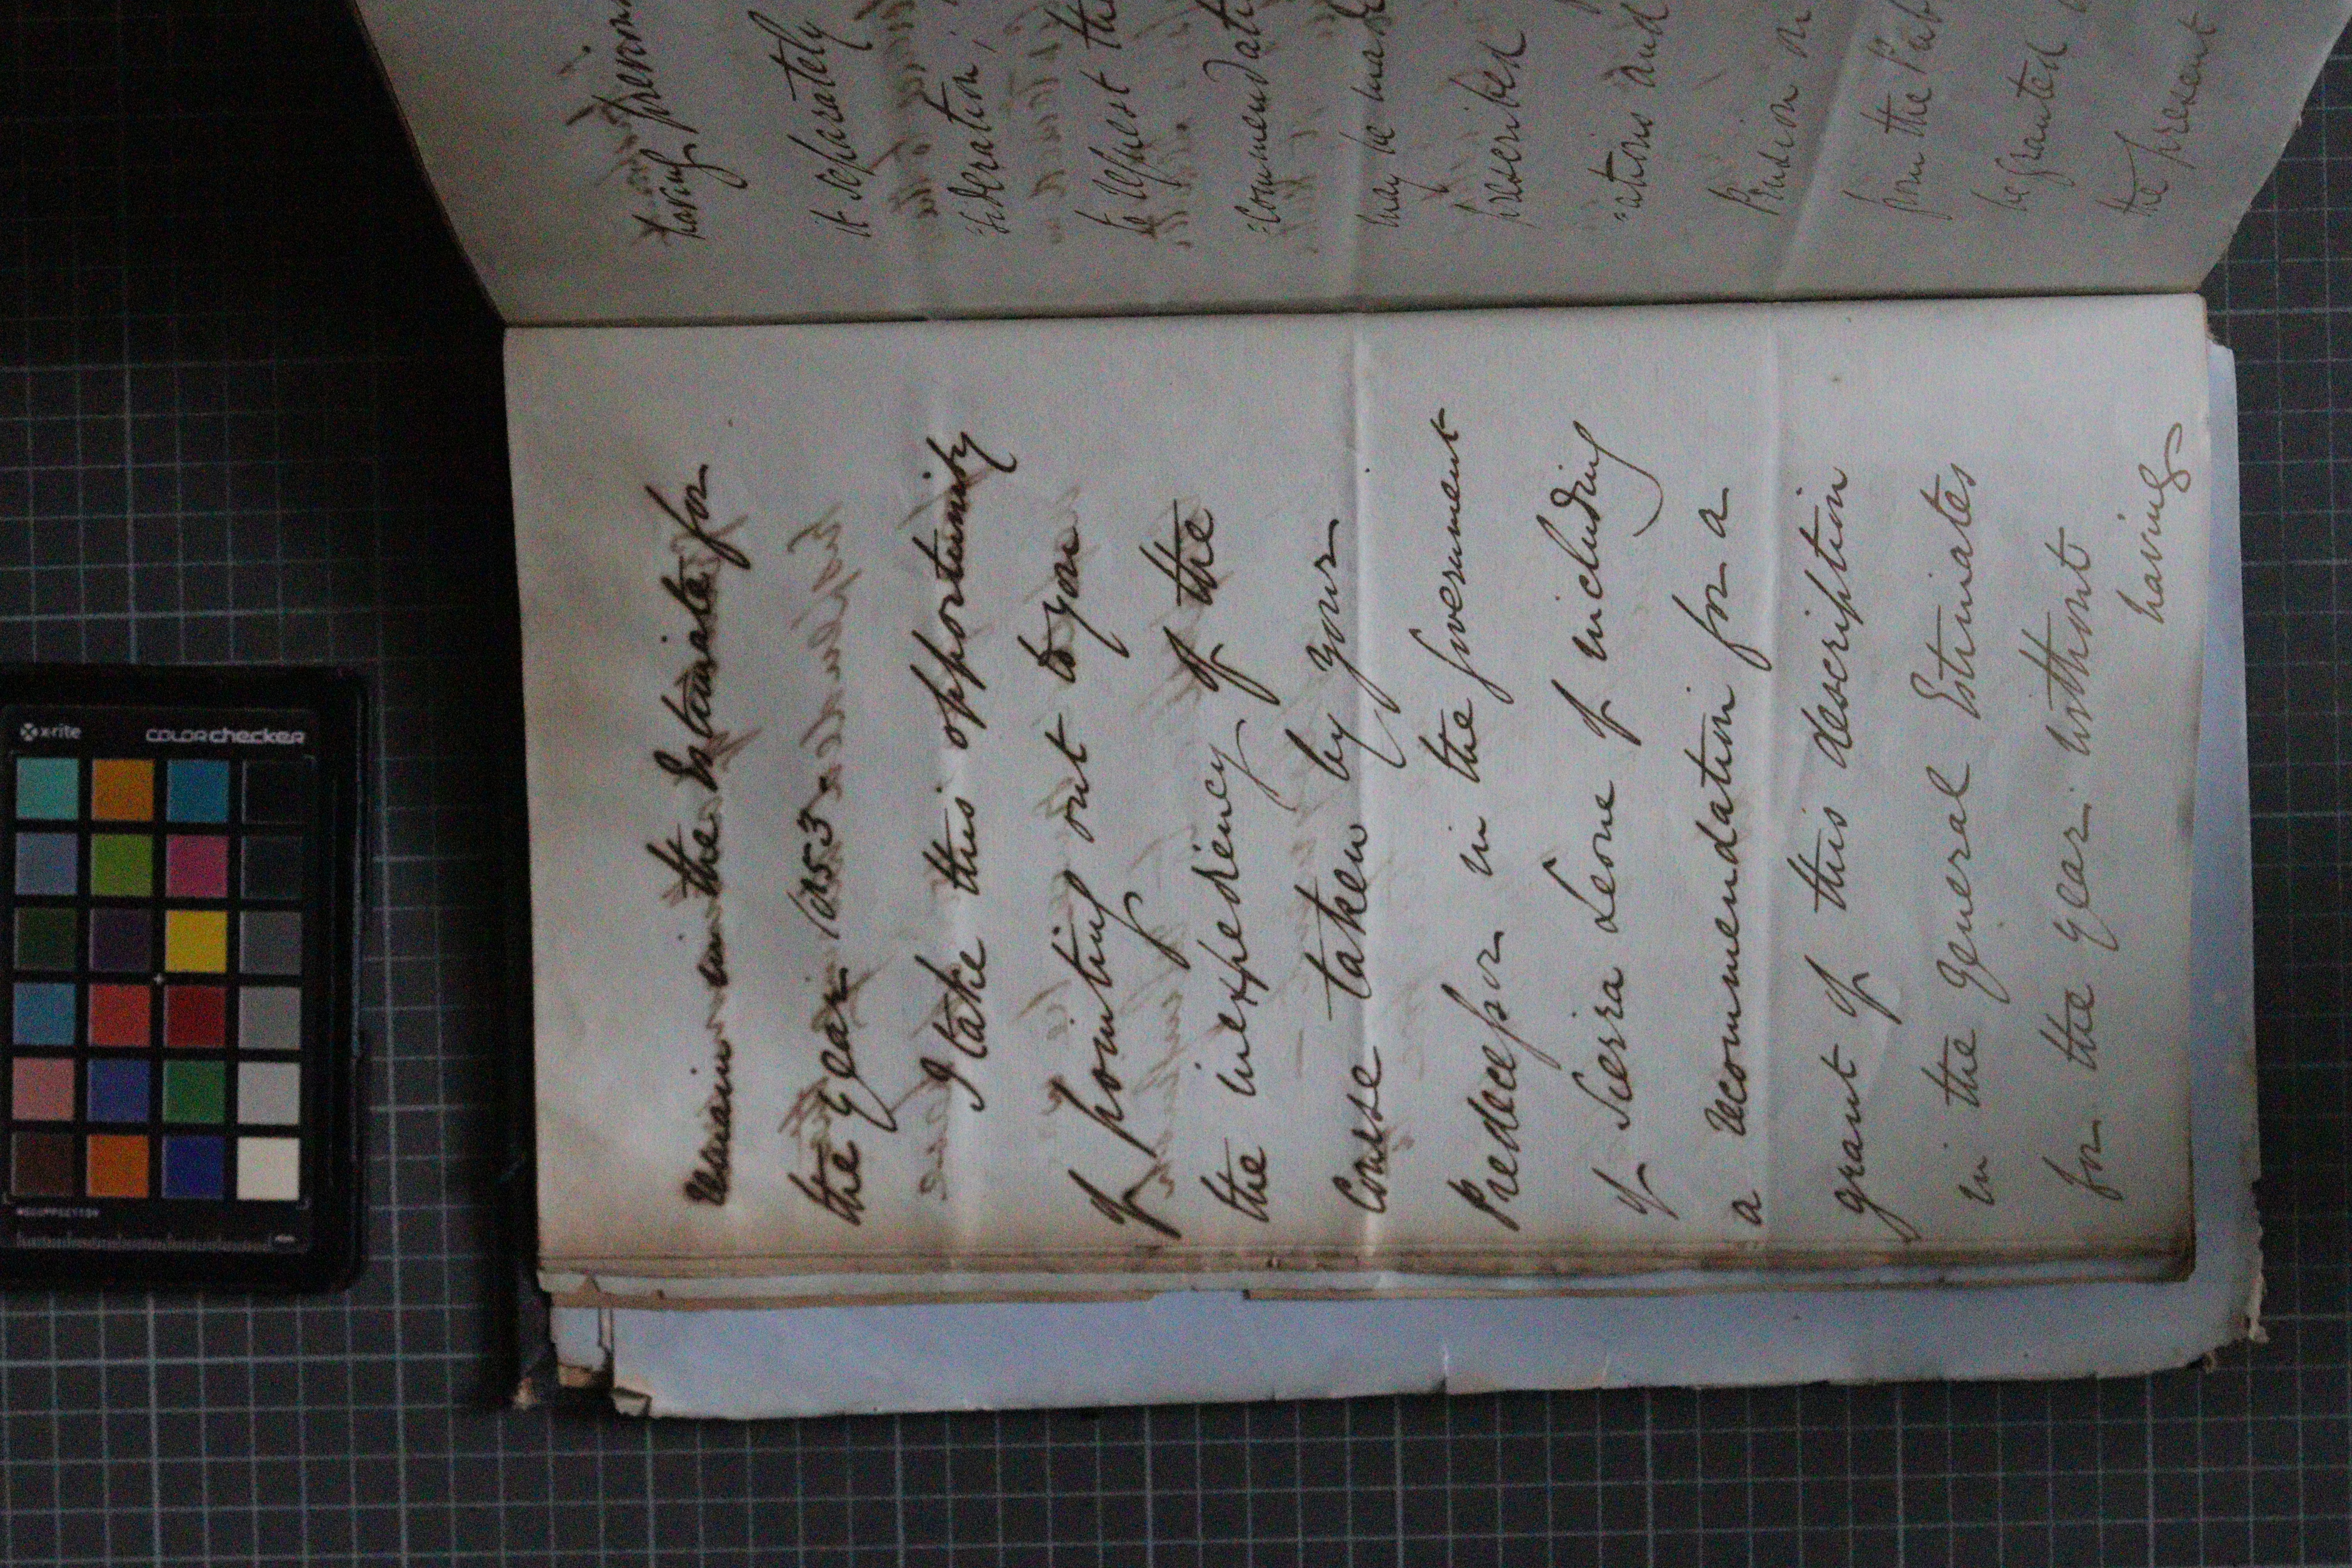 remain in the Estimate for
the year 1853.
I take this opportunity
of pointing out to you
the inexpediency of the
Course taken by your
Predecessor in the Government
of Sierra Leone of including
a recommendation for a
grant of this description
in the General Estimates
for the year without
having
having previous
it separately
:sideration,
to request tha
:commendati
may be made
prescribed
:ations and
Pension or
from the Pub
be granted
the present
x-rite
colorchecker